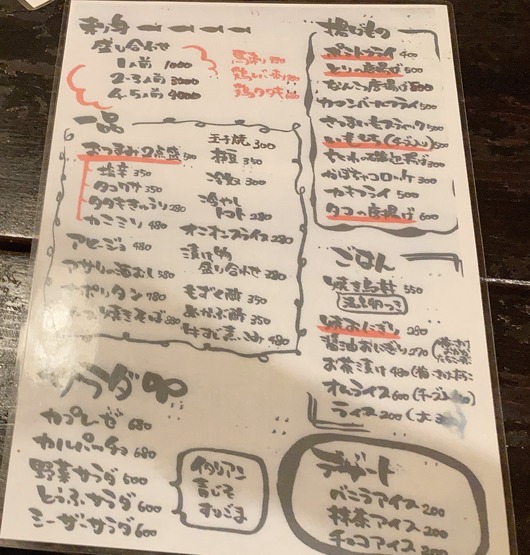 盛り合わせ
1人前 1000
2~3人前 3000
4~5人前 4000
馬刺し
鶏レバ刺
鶏タタキ
一品
おつまみ2点盛 500
塩辛 350
タコワサ 350
タタキきゅうり 280
カニミソ 480
アヒージョ 480
アサリの酒むし 580
ナポリタン 780
焼きそば 880
玉子焼 300
枝豆 350
冷奴 300
冷やし
トマト 280
オニオンスライス 280
漬け物
盛り合わせ 380
もずく酢 350
めかぶ酢 350
牛すじ煮こみ 480
サラダ
カプレーゼ 680
カルパッチョ 680
野菜サラダ 600
とうふサラダ 600
シーザーサラダ 600
イタリアン
青じそ
すりごま
揚げもの
ポテトフライ 400
とりの唐揚げ 500
なんこつ唐揚げ
カマンベールフライ 500
さつまいもスティック 500
いももち(チーズ入り) 500
ちくわの磯辺揚げ 300
かぼちゃコロッケ 300
カキフライ 500
タコの唐揚げ 600
ごはん
焼き鳥丼 550
温玉つき
焼おにぎり 280
醤油おにぎり 270
お茶漬け 480
オムライス 600
ライス 200
デザート
バニラアイス 200
抹茶アイス 200
チョコアイス